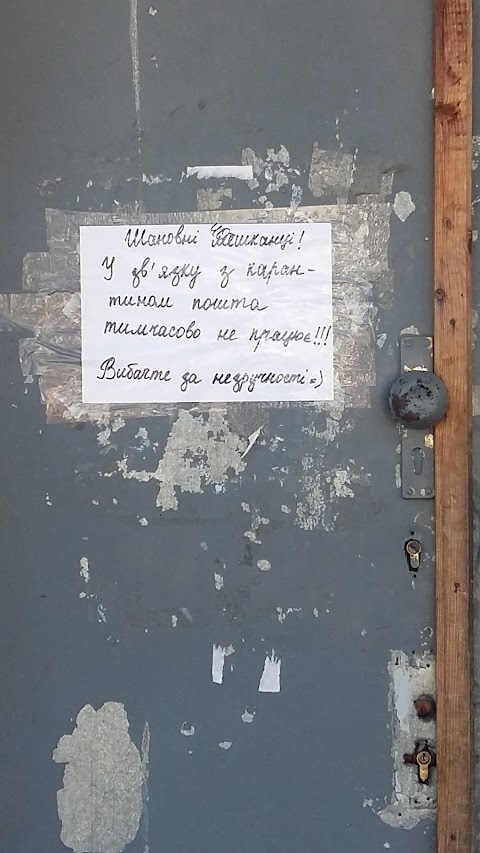 Шановні Дашканці!
У зв'язку з каран-
тином пошта
тимчасово не працює!!!
Вибачте за незручності =)